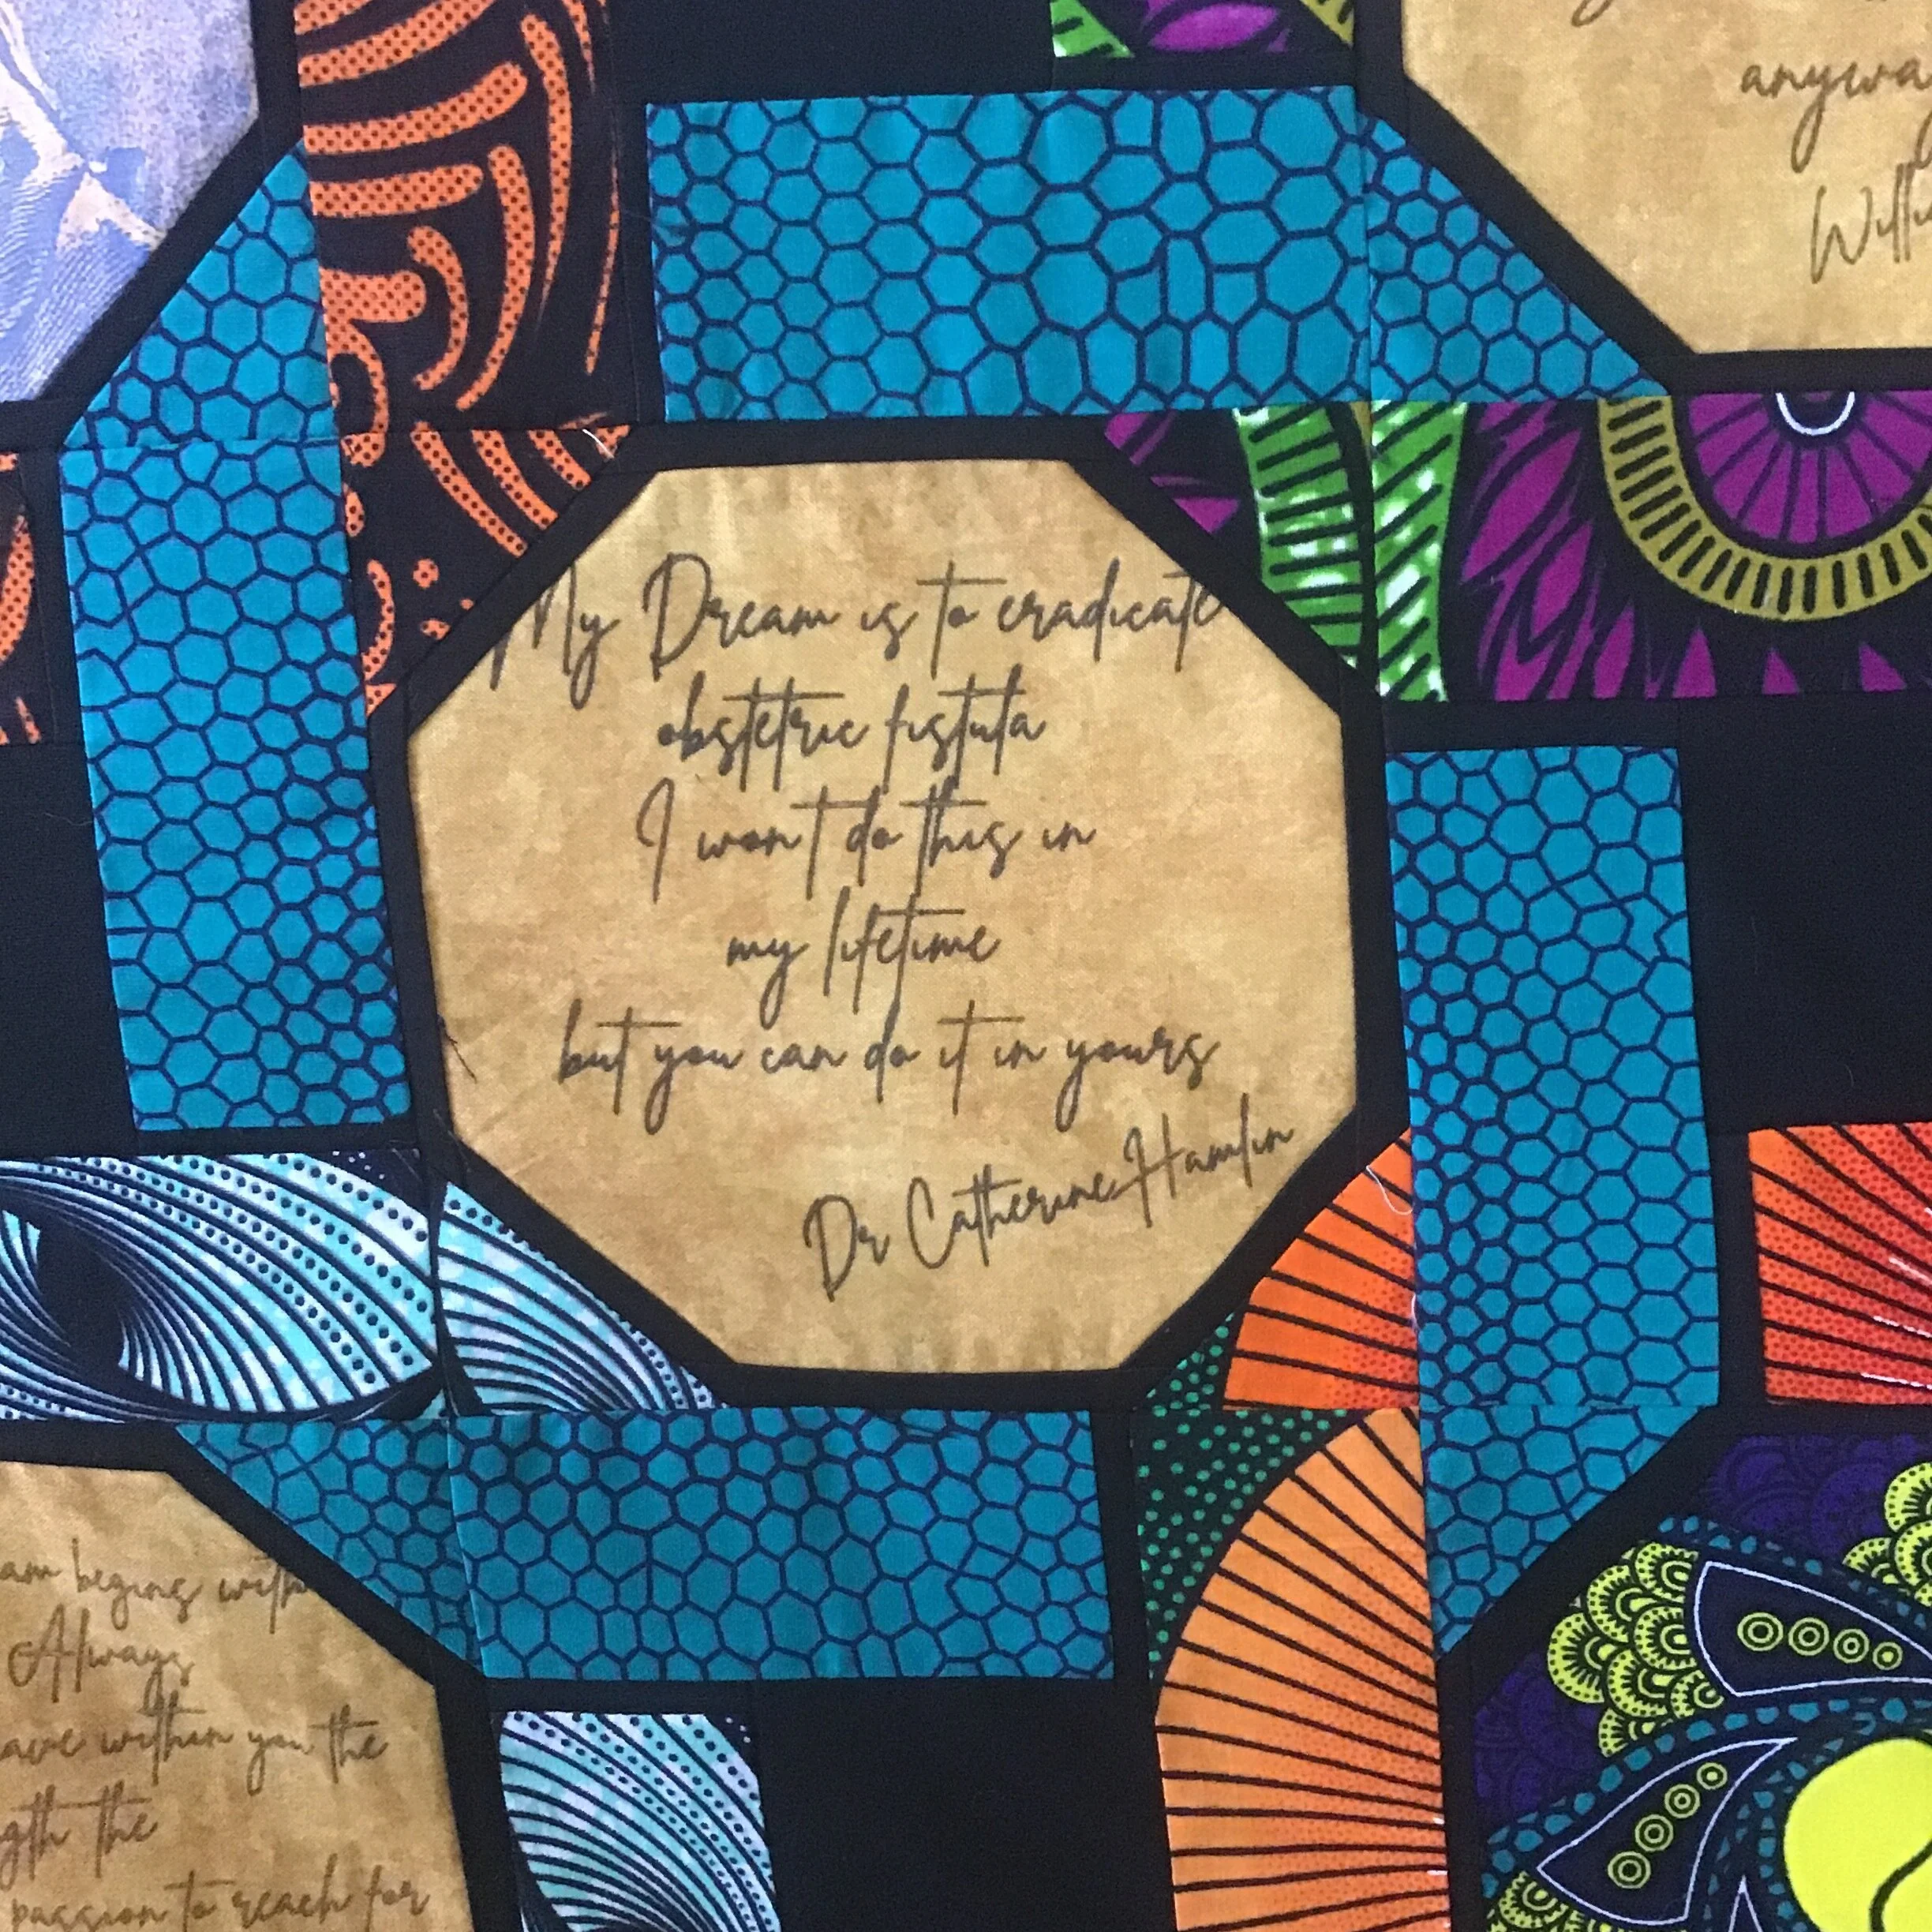 anyway
My Dream is to eradicate
obstetric fistula
I won't do this in
my lifetime
but you can do it in yours
Dr Catherine Hamlin
begins with
Always
within you the
the
passion to reach for